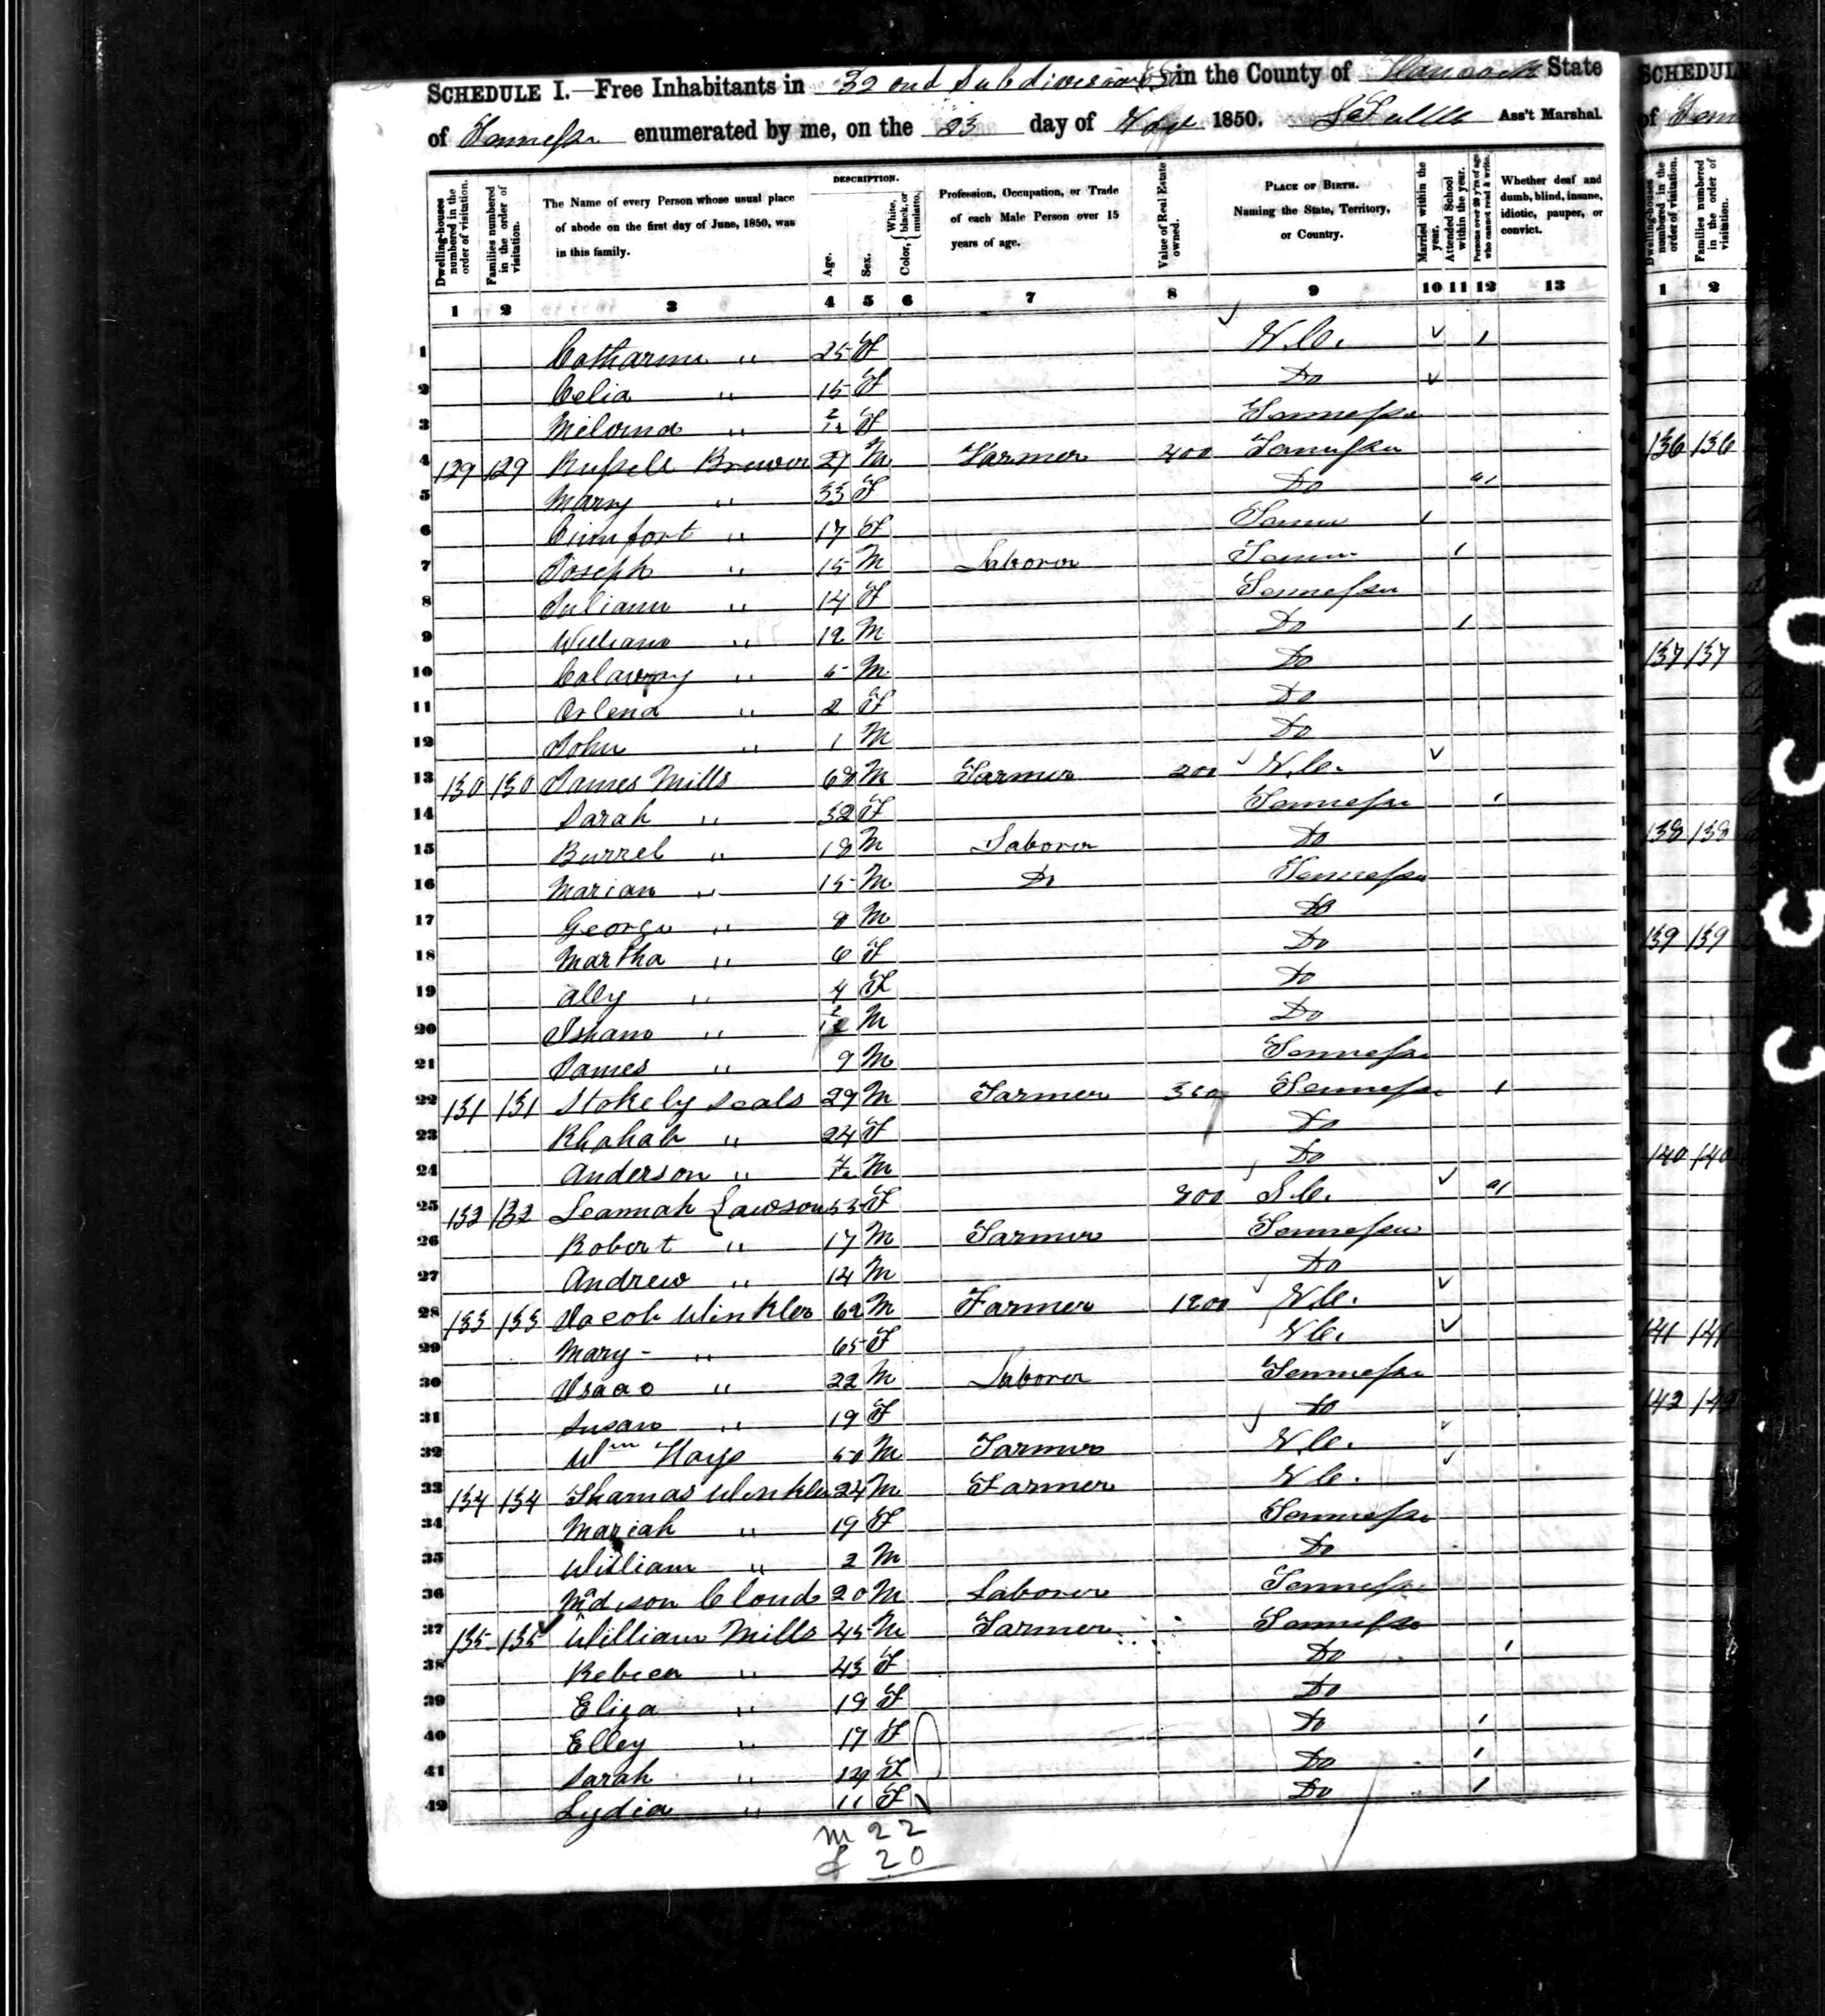 SCHEDULE I.—Free Inhabitants in 32 ond Subdivision in the County of Hancock State
of Tennessee enumerated by me, on the 23 day of Nov 1850. Ass't Marshal.
Dwelling-houses numbered in the order of visitation.
Families numbered in the order of visitation.
The Name of every Person whose usual place of abode on the first day of June, 1850, was in this family.
DESCRIPTION.
Age.
Sex.
Color, { White, black, or mulatto.
Profession, Occupation, or Trade of each Male Person over 15 years of age.
Value of Real Estate owned.
PLACE OF BIRTH. Naming the State, Territory, or Country.
Married within the year.
Attended School within the year.
Persons over 20 y'rs of age who cannot read & write.
Whether deaf and dumb, blind, insane, idiotic, pauper, or convict.
1 2 3 4 5 6 7 8 9 10 11 12 13
1 Catharine " 25 F N.C. ✓ 1
2 Celia " 15 F Do ✓
3 Melvina " 2/12 F Tennessee
4 129 129 Russell Brewer 27 M Farmer 400 Tennessee
5 Mary " 33 F Do 1
6 Cumfort " 17 F Tenne 1
7 Joseph " 15 M Laborer Tenne 1
8 Juliann " 14 F Tennessee
9 William " 12 M Do 1
10 Calaway " 5 M Do
11 Orlena " 2 F Do
12 John " 1 M Do
13 130 130 James Mills 68 M Farmer 200 N.C. ✓
14 Sarah " 32 F Tennessee 1
15 Burrel " 18 M Laborer Do
16 Marian " 15 M Do Tennessee
17 George " 8 M Do
18 Martha " 6 F Do
19 Ally " 4 F Do
20 Isham " 2/12 M Do
21 James " 9 M Tennessee
22 131 131 Stokely Seals 29 M Farmer 350 Tennessee 1
23 Rhahab " 24 F Do
24 Anderson " 7/12 M Do
25 132 132 Leannah Lawson 53 F 300 S.C. ✓ 1
26 Robert " 17 M Farmer Tennessee
27 Andrew " 14 M Do
28 133 133 Jacob Winkler 62 M Farmer 1200 N.C. ✓
29 Mary - " 65 F N.C. ✓
30 Isaac " 22 M Laborer Tennessee
31 Susan " 19 F Do
32 Wm Hays 50 M Farmer N.C. ✓
33 134 134 Thomas Winkler 24 M Farmer N.C. ✓
34 Mariah " 19 F Tennessee
35 William " 2 M Do
36 Madison Cloud 20 M Laborer Tennessee
37 135 135 William Mills 45 M Farmer Tennessee
38 Rebeca " 43 F Do 1
39 Eliza " 19 F Do
40 Elley " 17 F Do 1
41 Sarah " F Do 1
42 Lydia " 11 F Do 1
m 22
f 20
SCHEDUL
of Tenn
Dwelling-houses numbered in the order of visitation.
Families numbered in the order of visitation.
1 2
136 136
137 137
138 138
139 139
140 140
141 141
142 142